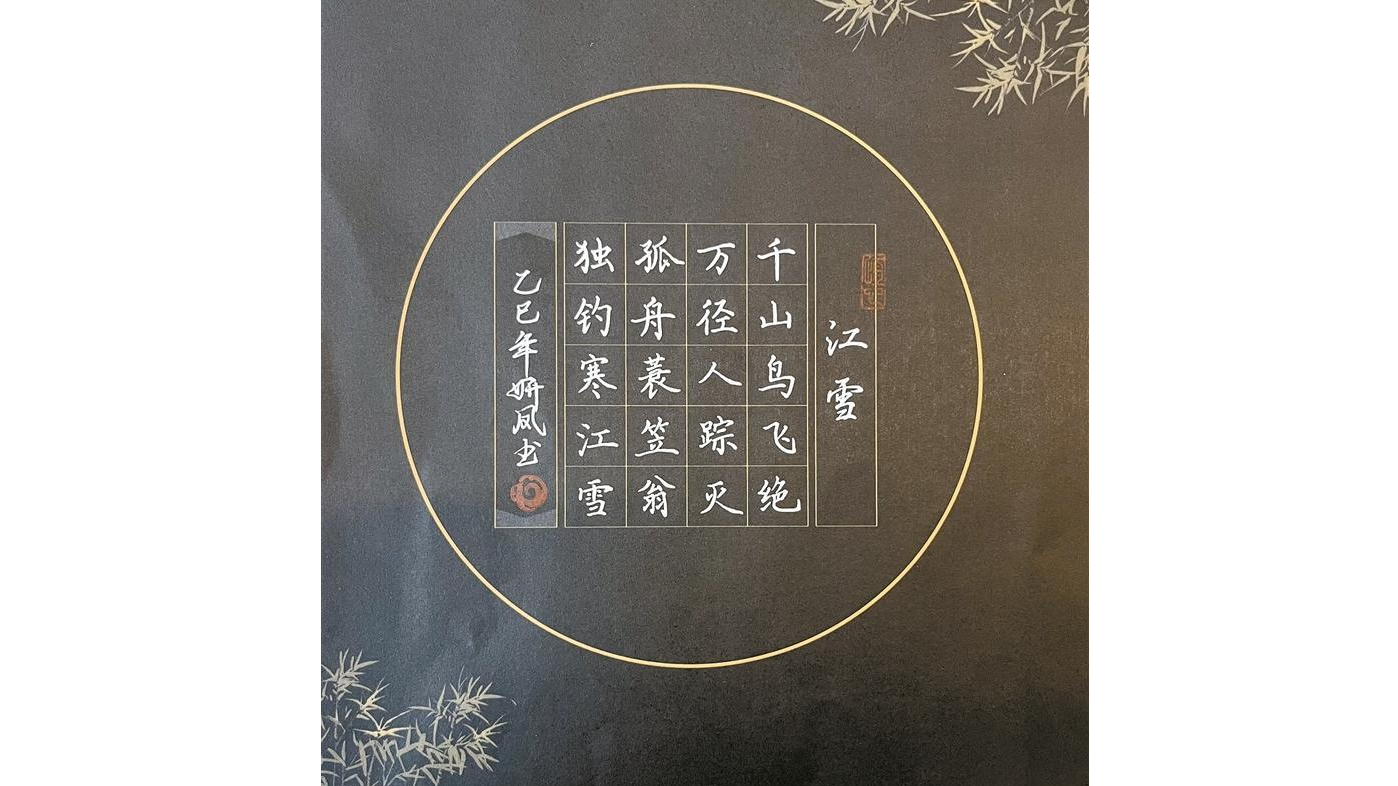 江雪
千山鸟飞绝
万径人踪灭
孤舟蓑笠翁
独钓寒江雪
乙巳年妍凤书